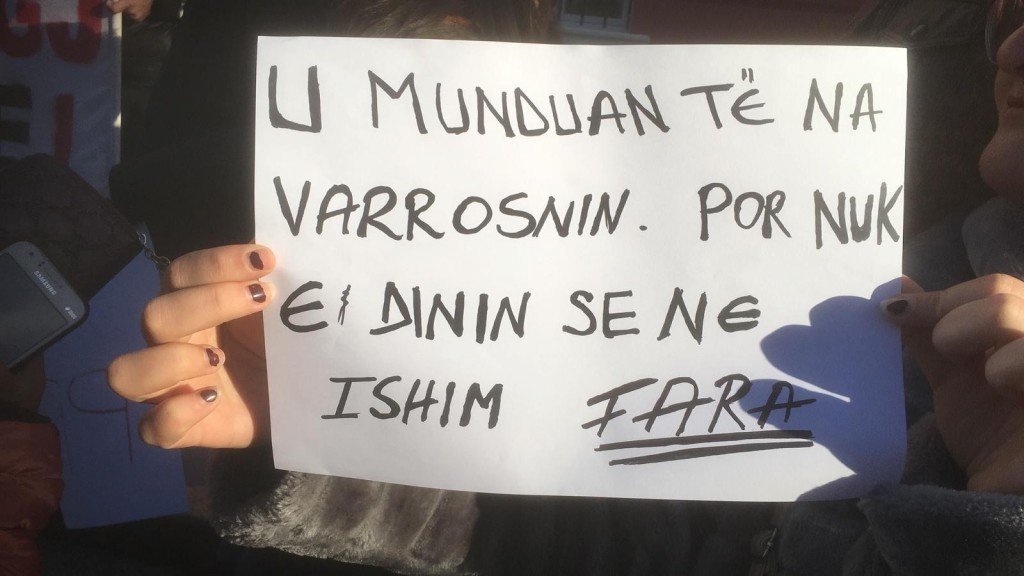 U MUNDUAN TË NA
VARROSNIN. POR NUK
E DININ SE NE
ISHIM FARA
SAMSUNG